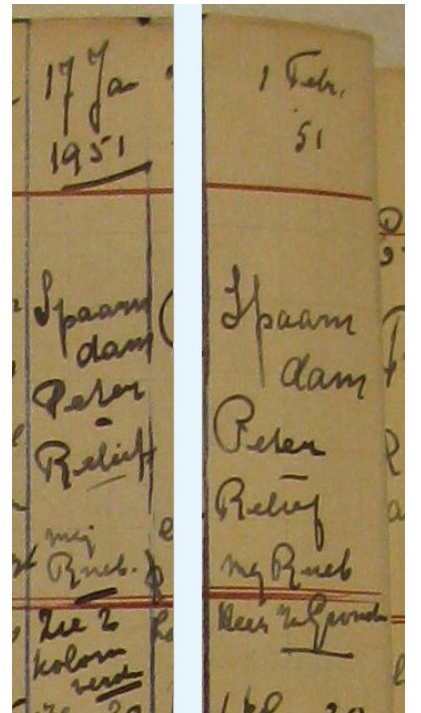 17 Ja
1951
Spaarn
dam
Peter
Relief
mej
Rueb.
Zie 2
kolom
verd
1 Febr.
51
Spaarn
dam
Peter
Relief
mej Rueb